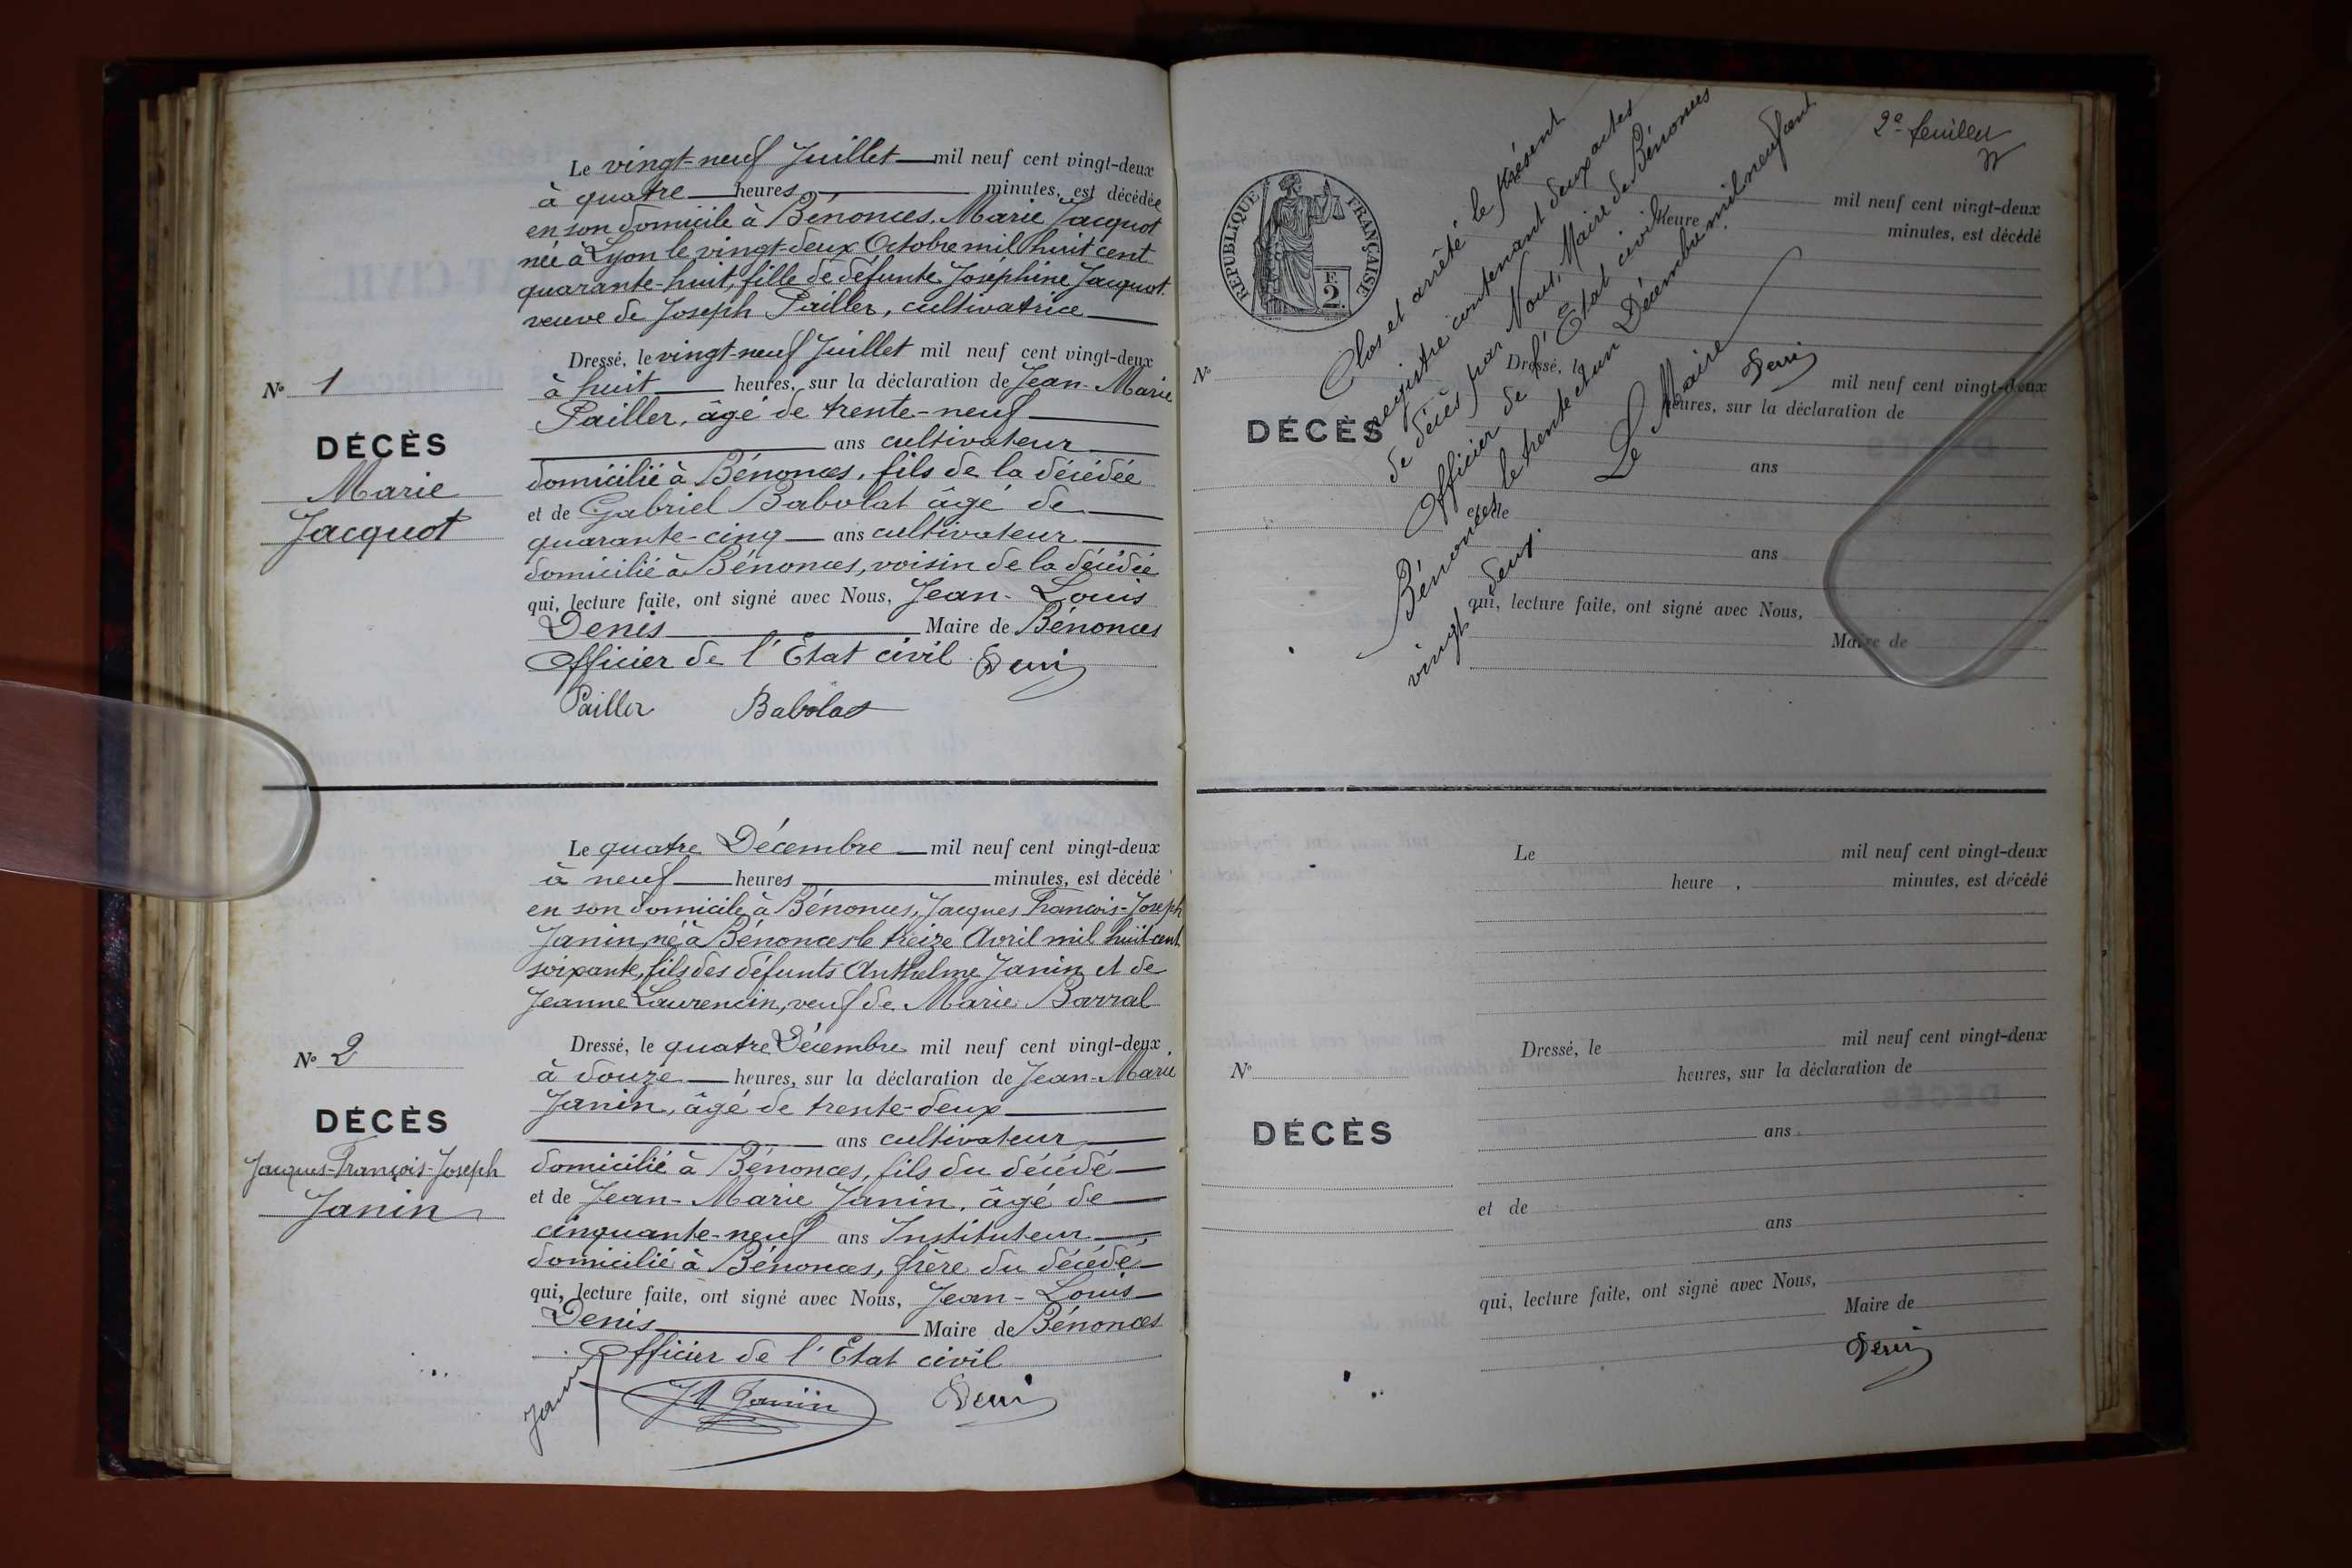 Le vingt-neuf Juillet mil neuf cent vingt-deux
à quatre heures minutes, est décédée
en son domicile à Bénonces, Marie Jacquot
née à Lyon le vingt-deux Octobre mil huit cent
quarante-huit, fille de défunte Joséphine Jacquot
veuve de Joseph Pailler, cultivatrice
Dressé, le vingt-neuf Juillet mil neuf cent vingt-deux
à huit heures, sur la déclaration de Jean-Marie
Pailler, âgé de trente-neuf
ans cultivateur
domicilié à Bénonces, fils de la décédée
et de Gabriel Babolat âgé de
quarante-cinq ans cultivateur
domicilié à Bénonces, voisin de la décédée
qui, lecture faite, ont signé avec Nous, Jean-Louis
Denis Maire de Bénonces
Officier de l'Etat civil Denis
Pailler Babolat
N° 1
DÉCÈS
Marie
Jacquot
Le quatre Décembre mil neuf cent vingt-deux
à neuf heures minutes, est décédé
en son domicile à Bénonces, Jacques François-Joseph
Janin, né à Bénonces le treize Avril mil huit cent
soixante, fils des défunts Anthelme Janin et de
Jeanne Laurencin, veuf de Marie Barral
Dressé, le quatre Décembre mil neuf cent vingt-deux
à douze heures, sur la déclaration de Jean-Marie
Janin, âgé de trente-deux
ans cultivateur
domicilié à Bénonces, fils du décédé
et de Jean-Marie Janin, âgé de
cinquante-neuf ans Instituteur
domicilié à Bénonces, frère du décédé
qui, lecture faite, ont signé avec Nous, Jean-Louis
Denis Maire de Bénonces
Officier de l'Etat civil
Janin JM Janin Denis
N° 2
DÉCÈS
Jacques-François-Joseph
Janin
2e feuillet
RÉPUBLIQUE FRANÇAISE
F.
2.
mil neuf cent vingt-deux
heure minutes, est décédé
Clos et arrêté le présent
registre contenant deux actes
de décès par Nous, Maire de Bénonces
Officier de l'Etat civil
Bénonces le trente et un Décembre mil neuf cent
vingt deux.
Le Maire
Denis
N°
DÉCÈS
Dressé, le mil neuf cent vingt-deux
heures, sur la déclaration de
ans
et de
ans
qui, lecture faite, ont signé avec Nous,
Maire de
Le mil neuf cent vingt-deux
heure minutes, est décédé
N°
DÉCÈS
Dressé, le mil neuf cent vingt-deux
heures, sur la déclaration de
ans
et de
ans
qui, lecture faite, ont signé avec Nous,
Maire de
Denis